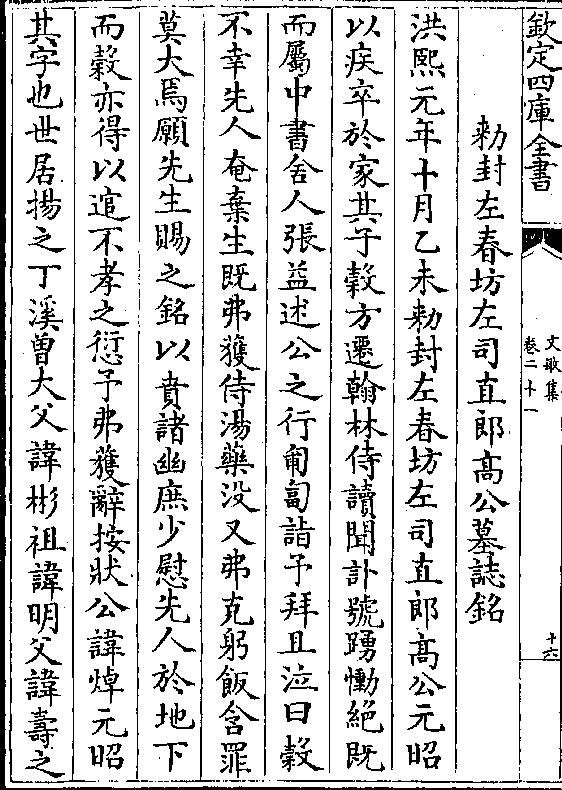 欽定四庫全書
文敏集
卷二十一
十六
勑封左春坊左司直郎髙公墓誌銘
洪熙元年十月乙未勑封左春坊左司直郎髙公元昭
以疾卒於家其子穀方遷翰林侍讀聞訃號踴慟絶既
而屬中書舍人張益述公之行匍匐詣予拜且泣曰穀
不幸先人奄棄生既弗獲侍湯藥没又弗克躬飯含罪
莫大焉願先生賜之銘以賁諸幽庶少慰先人於地下
而穀亦得以逭不孝之愆予弗獲辭按狀公諱焯元昭
其字也世居揚之丁溪曾大父諱彬祖諱明父諱壽之